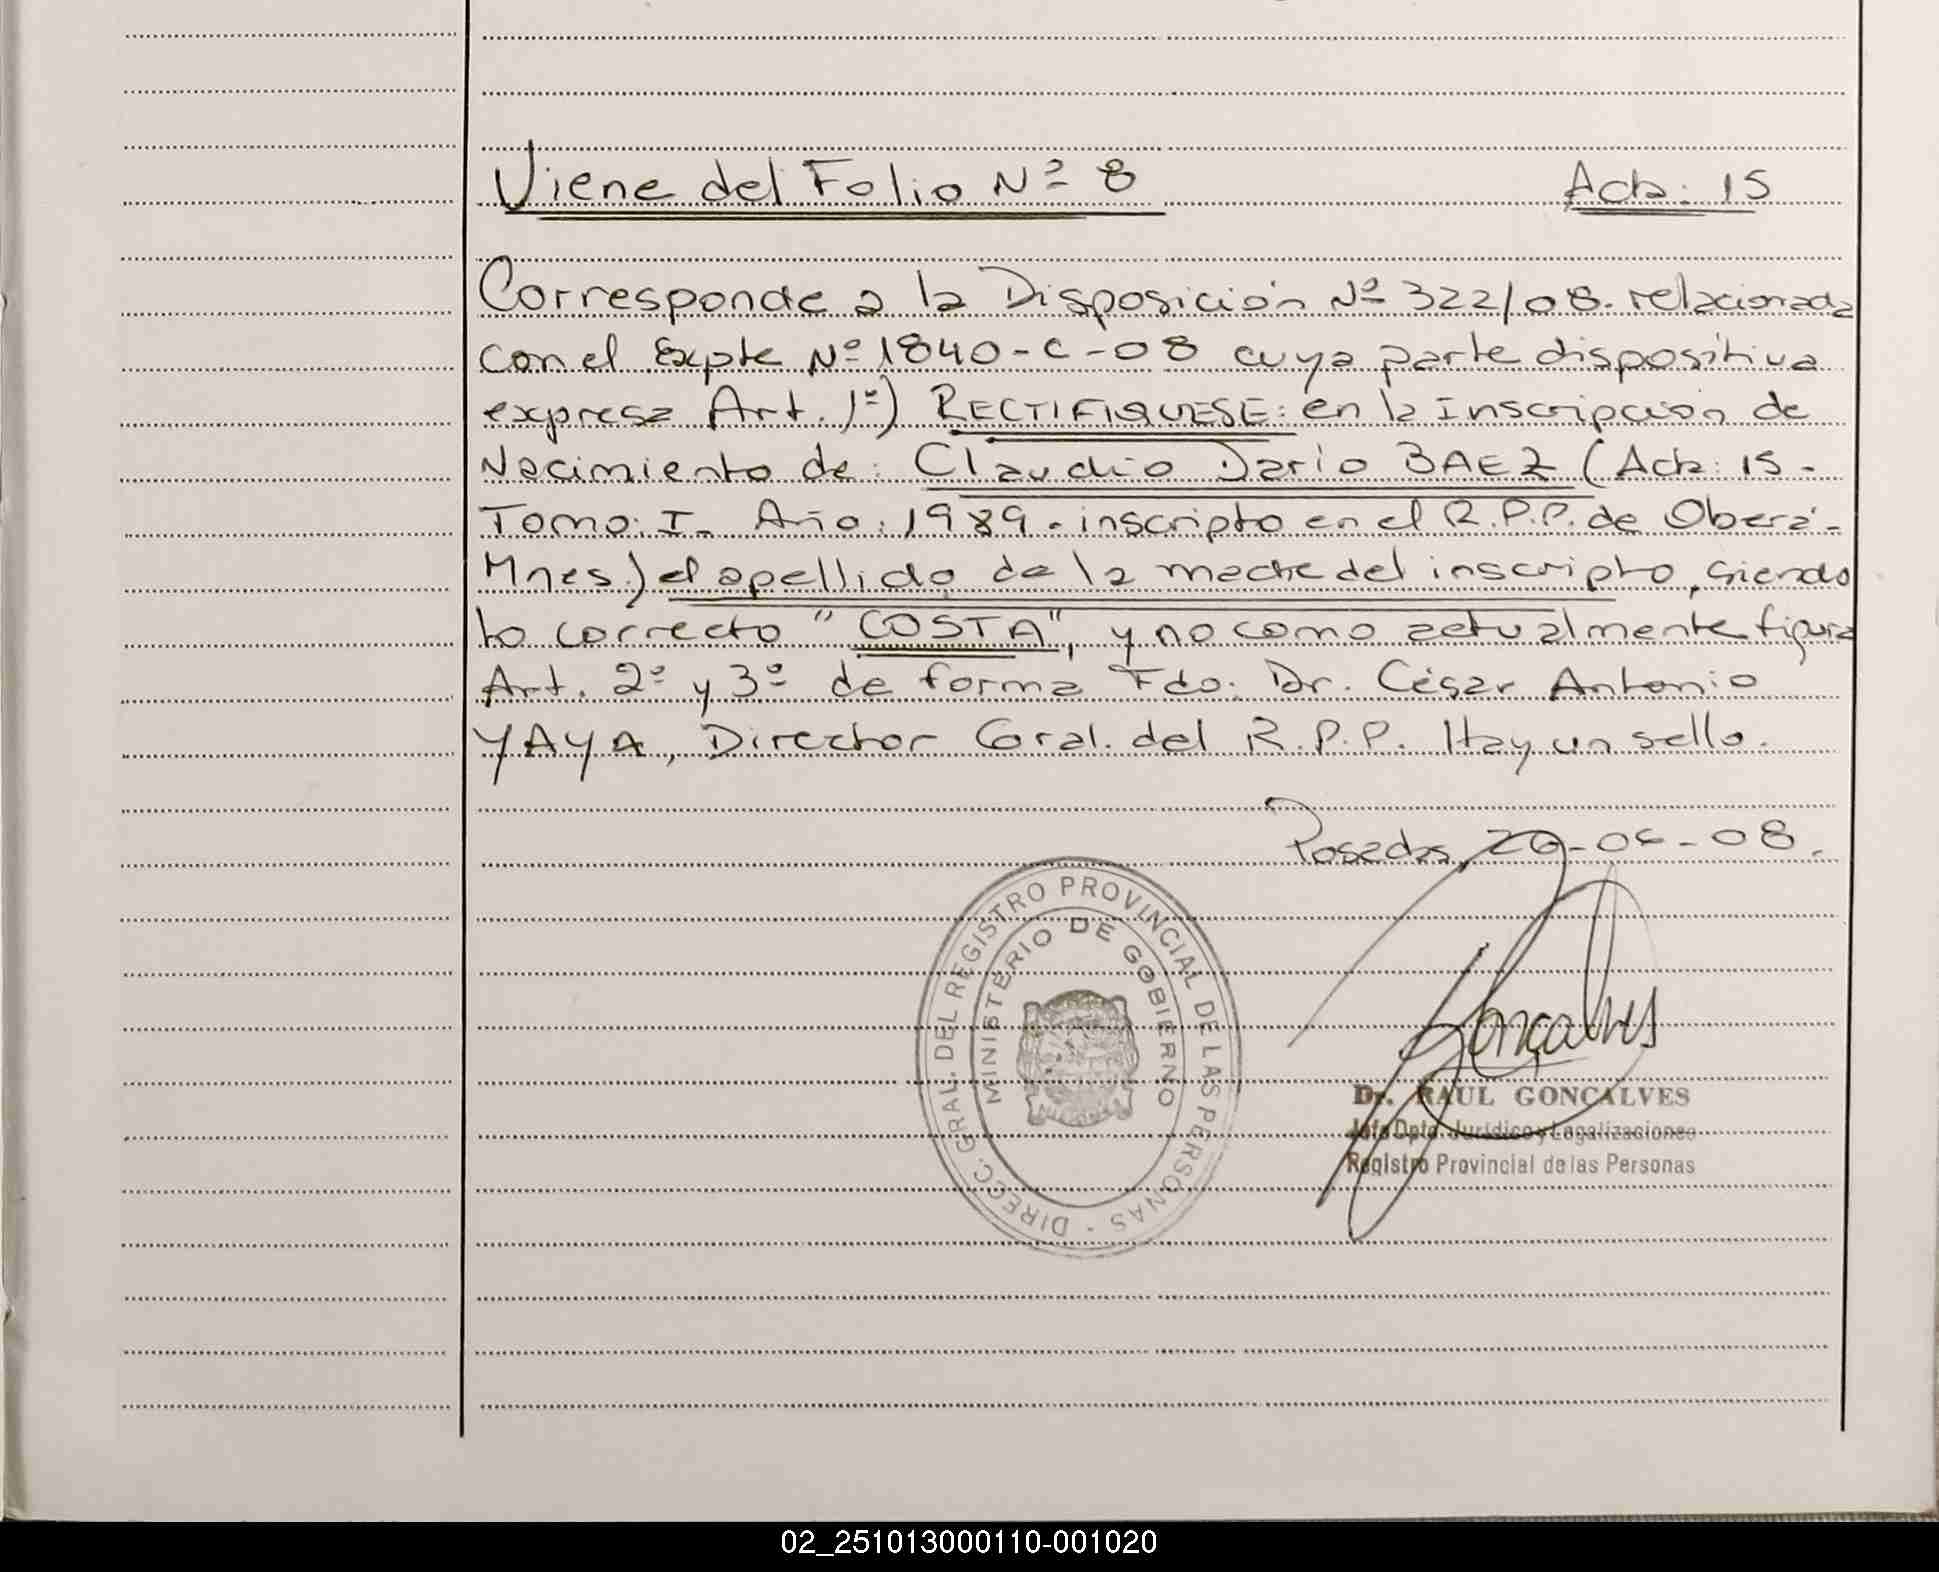 Viene del Folio Nº 8 Acta: 15
Corresponde a la Disposición Nº 322/08. relacionada
con el Expte Nº 1840-C-08 cuya parte dispositiva
expresa Art. 1º) RECTIFIQUESE: en la Inscripción de
Nacimiento de: Claudio Dario BAEZ (Acta: 15-
Tomo: I- Año: 1989. inscripto en el R.P.P. de Oberá-
Mnes.) el apellido de la madre del inscripto, siendo
lo correcto "COSTA", y no como actualmente figura
Art. 2º y 3º de forma Fdo: Dr. César Antonio
YAYA, Director Gral. del R.P.P. Hay un sello.
Posadas, -08.
DIRECC. GRAL. DEL REGISTRO PROVINCIAL DE LAS PERSONAS -
MINISTERIO DE GOBIERNO
Gonçalves
Dr. RAUL GONCALVES
Jefe Dpto. Jurídico y Legalizaciones
Registro Provincial de las Personas
02_251013000110-001020